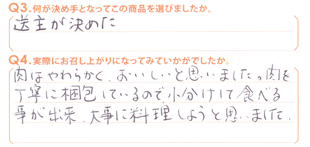 Q3.何が決め手となってこの商品を選びましたか。
送主が決めた
Q4.実際にお召し上がりになってみていかがでしたか。
肉はやわらかく、おいしいと思いました。肉を
丁寧に梱包しているので小分けして食べる
事が出来、大事に料理しようと思いました。